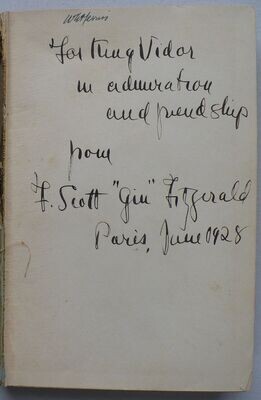 For King Vidor
in admiration
and friendship
from
F. Scott "Gin" Fitzgerald
Paris, June 1928